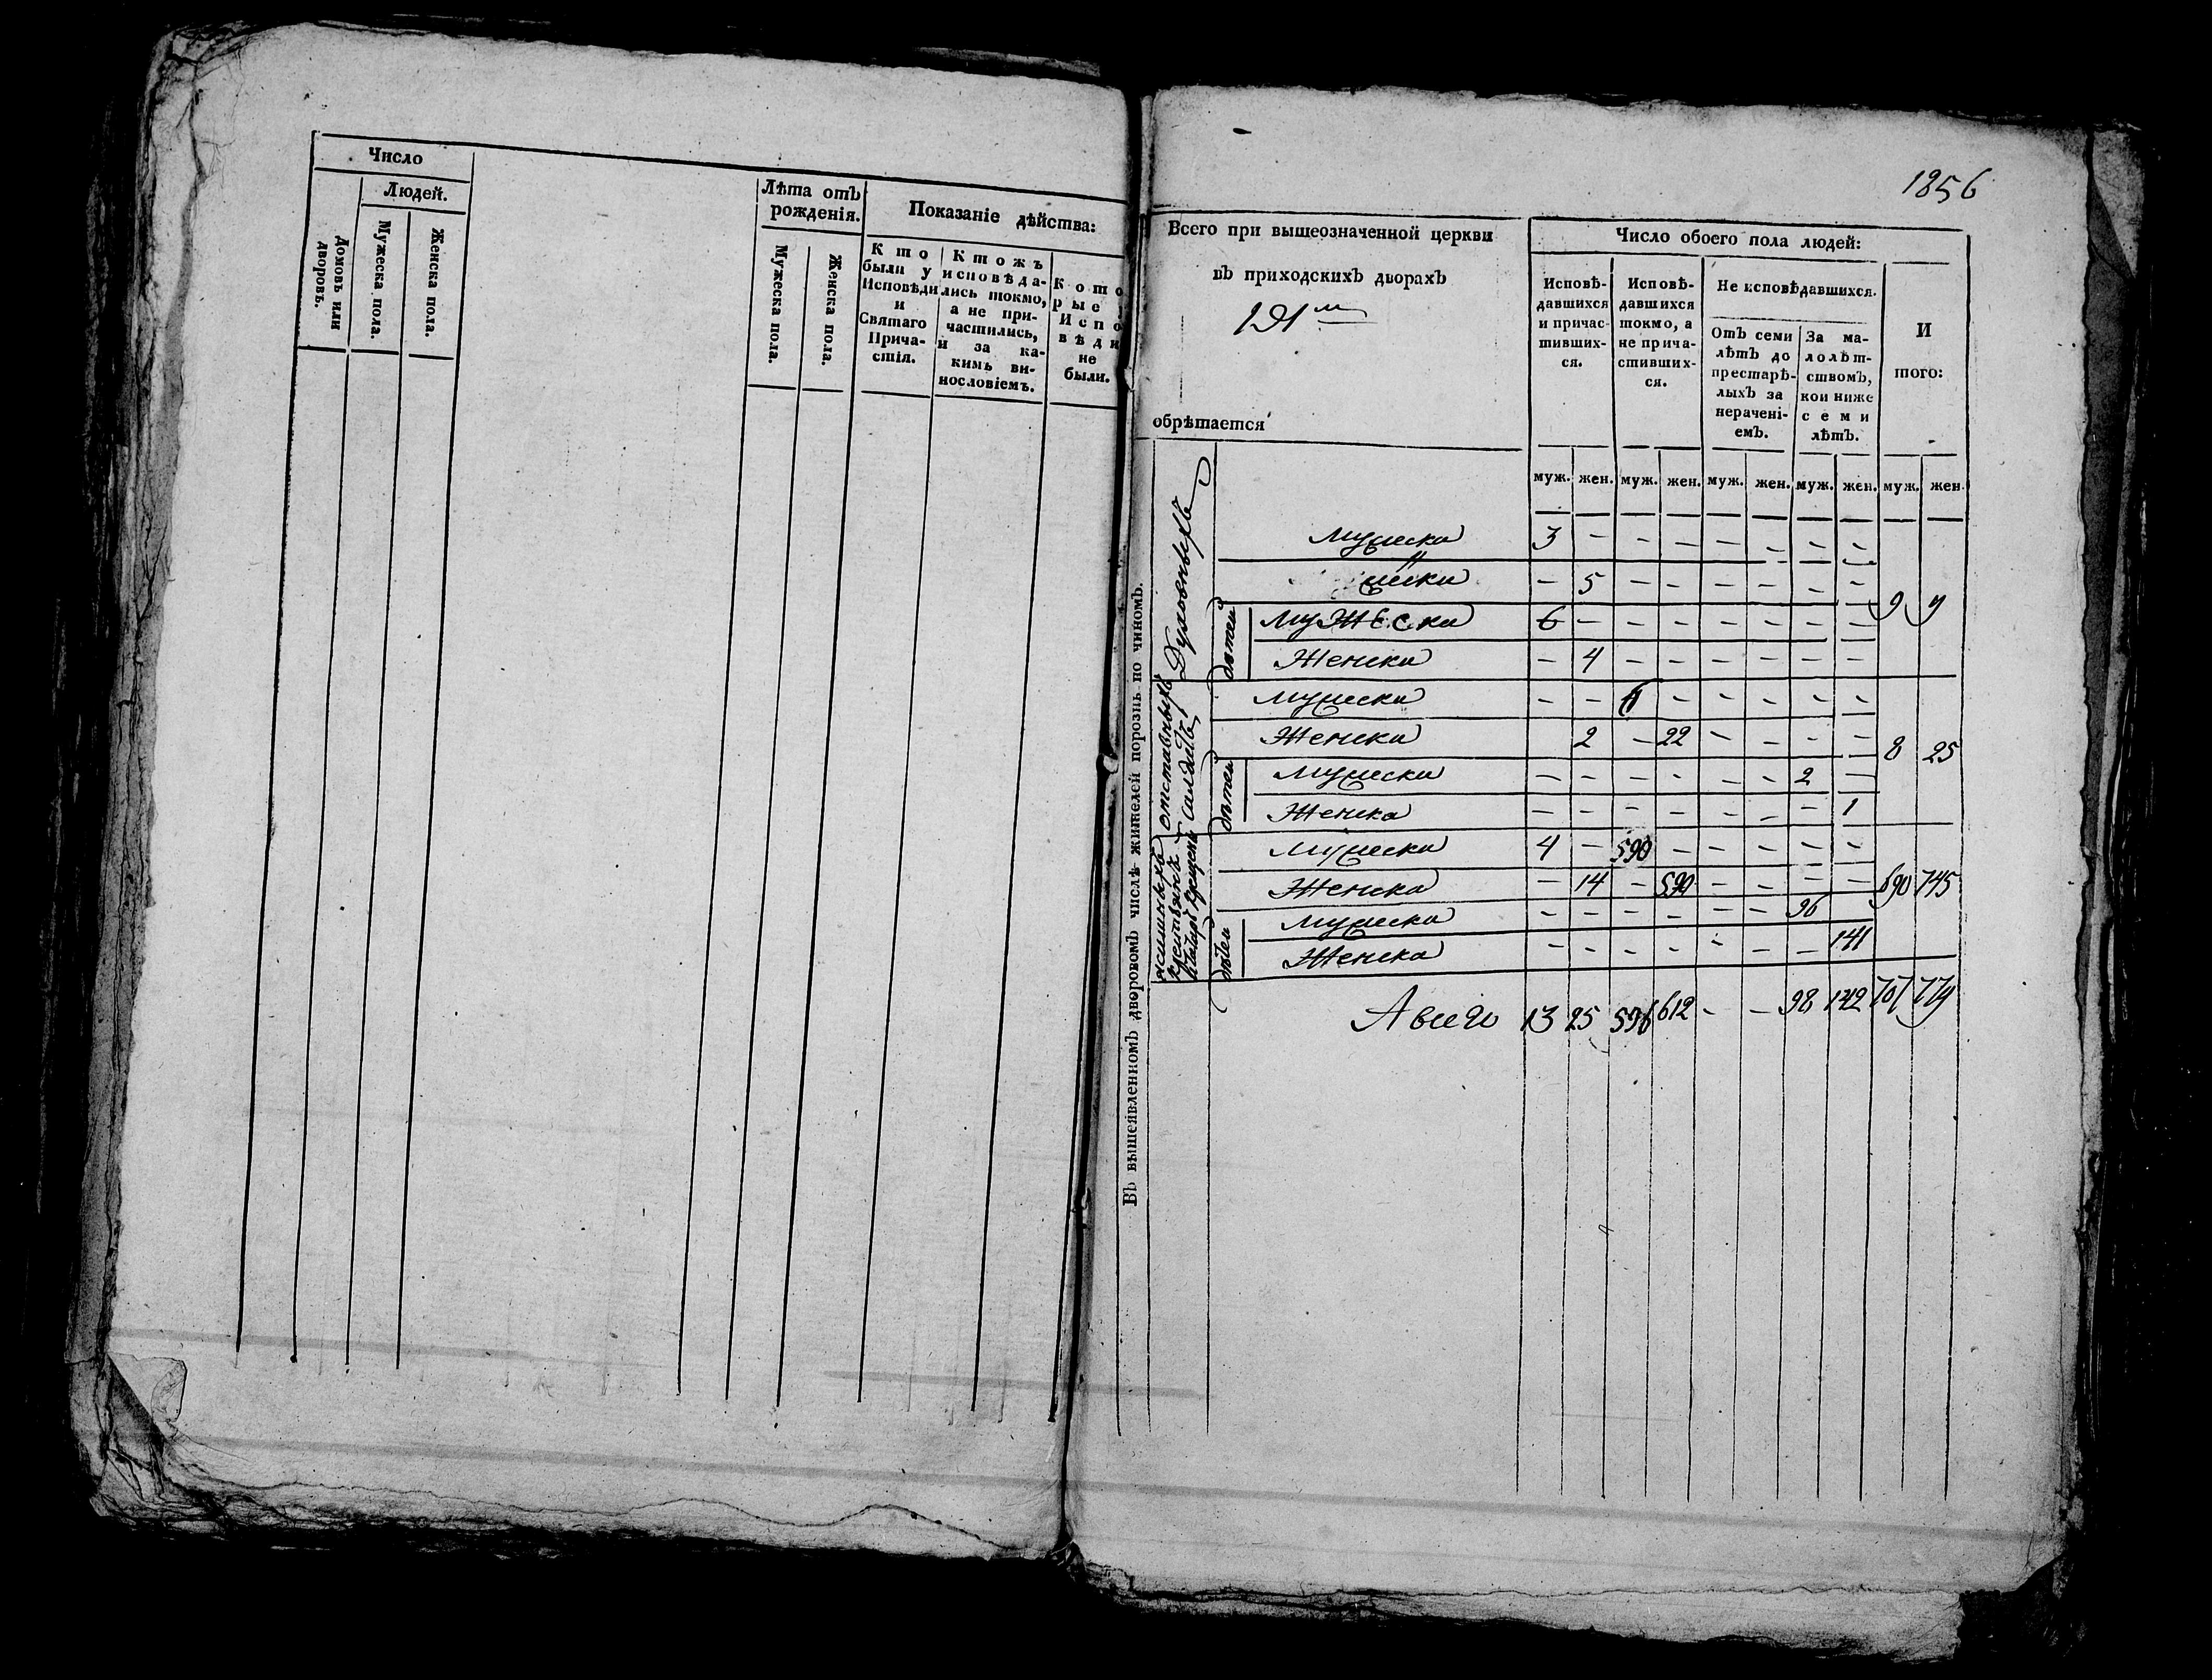 Число
Людей.
Домовъ или дворовъ.
Мужеска пола.
Женска пола.
Лѣта отъ рожденія.
Мужеска пола.
Женска пола.
Показаніе дѣйства:
Кто были у Исповѣди и Святаго Причастія.
Ктожъ исповѣдались токмо, а не причастились, и за какимъ винословіемъ.
Которые у Исповѣди не были.
1856
Всего при вышеозначенной церкви
въ приходскихъ дворахъ
191
обрѣтается
Число обоего пола людей:
Исповѣдавшихся и причастившихся.
Исповѣдавшихся токмо, а не причастившихся.
Не исповѣдавшихся.
Отъ семи лѣтъ до престарѣлыхъ за нераченіемъ.
За малолѣтствомъ, кои ниже семи лѣтъ.
И того:
муж. жен. муж. жен. муж. жен. муж. жен. муж. жен.
Въ вышеявленномъ дворовомъ числѣ жителей порознь по чиномъ.
Духовныхъ
Мужеска 3 - - - - - - -
- 5 - - - - - -
9 9
дѣтей
Мужеска 6 - - - - - - -
Женска - 4 - - - - - -
отставныхъ салдатъ
Мужеска - - 6 - - - - -
Женска 2 - 22 - - - -
8 25
дѣтей
Мужеска - - - - - - 2 -
Женска - - - - - - - 1
крещен
Мужеска 4 - 590 - - - - -
Женска - 14 - 590 - - - -
690 745
дѣтей
Мужеска - - - - - - 96
Женска - - - - - - - 141
А всего 13 25 596 612 - - 98 142 707 779